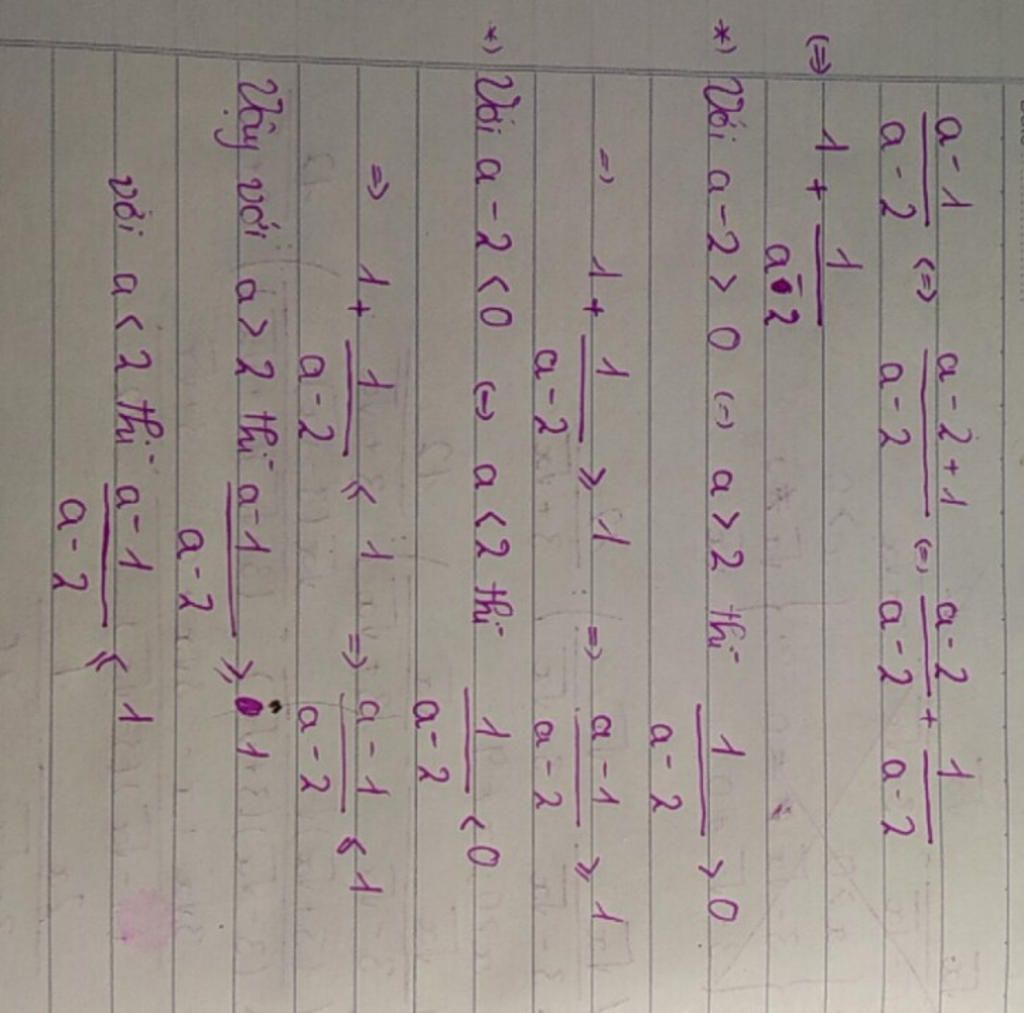 a-1/a-2 (=) a-2+1/a-2 (=) a-2/a-2 + 1/a-2
(=) 1 + 1/a-2
*) Với a-2 > 0 (=) a > 2 thì 1/a-2 > 0
=) 1 + 1/a-2 ≥ 1 => a-1/a-2 ≥ 1
*) Với a-2 < 0 (=) a < 2 thì 1/a-2 < 0
=) 1 + 1/a-2 ≤ 1 => a-1/a-2 ≤ 1
Vậy với a > 2 thì a-1/a-2 ≥ 1
với a < 2 thì a-1/a-2 ≤ 1